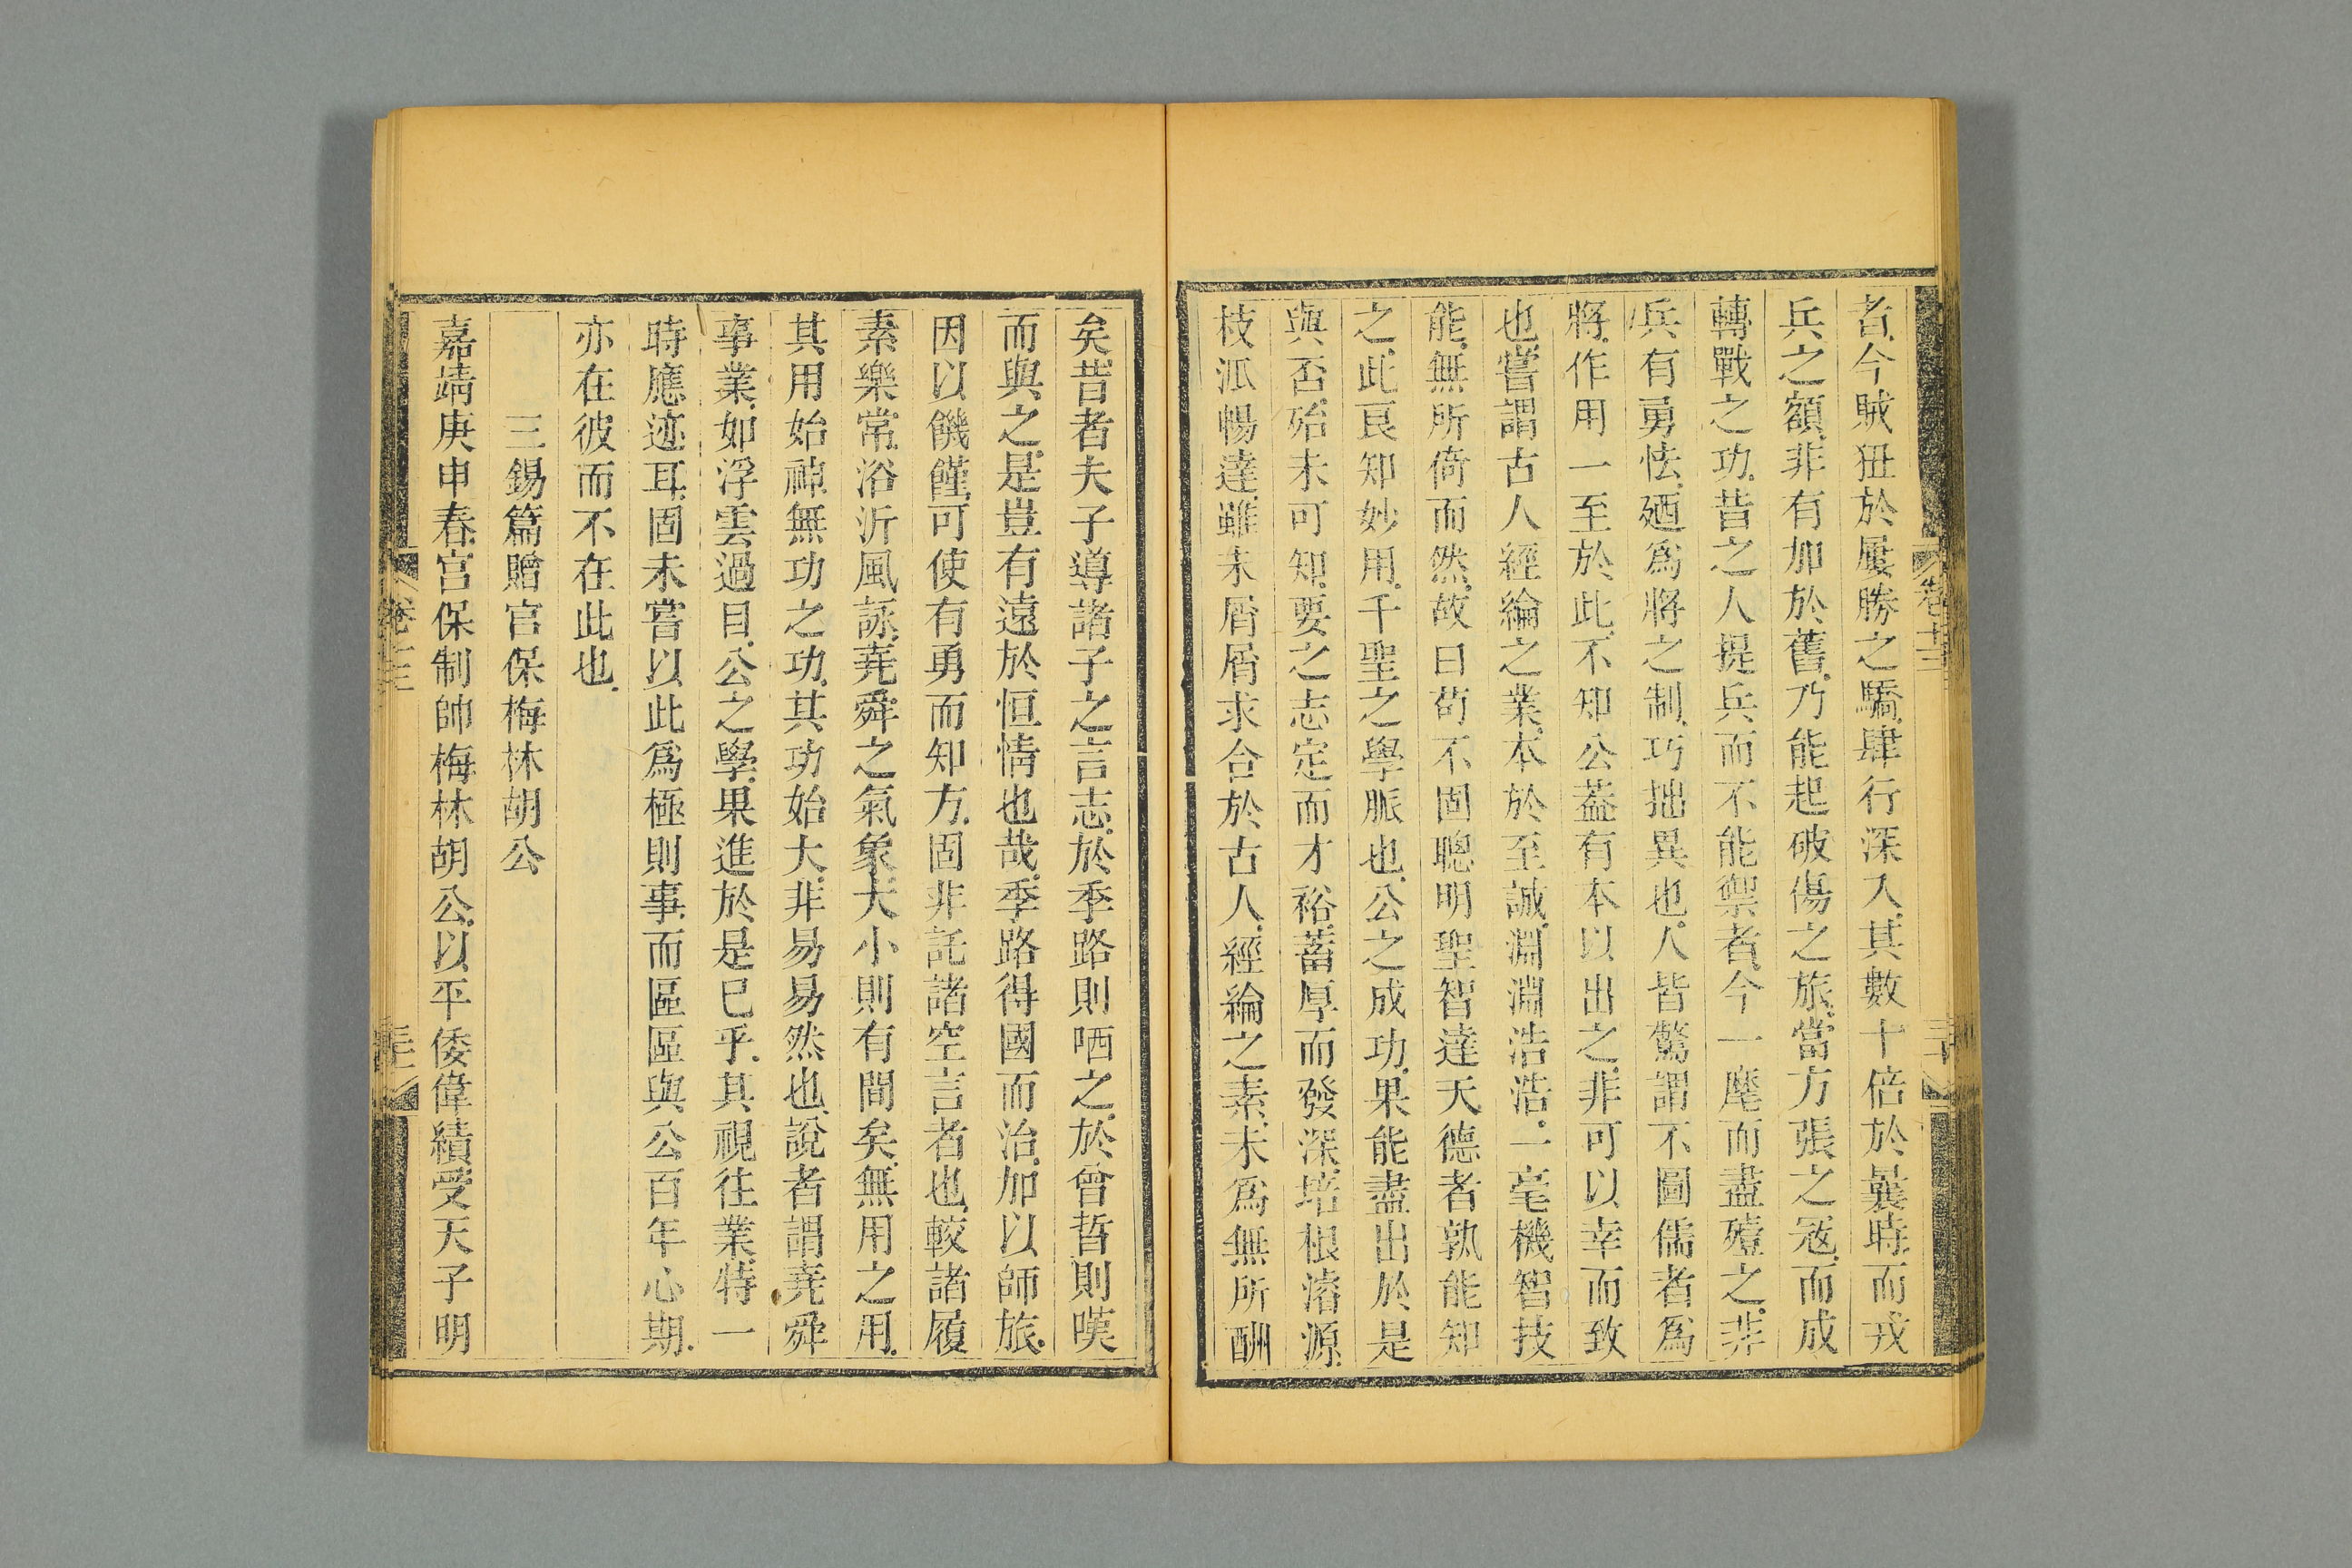 者今賊狃於屢勝之驕肆行深入其數十倍於曩時而戎
兵之額非有加於舊乃能起破傷之旅當方張之冦而成
轉戰之功昔之人提兵而不能禦者今一麾而盡殪之非
兵有勇怯廼爲將之制巧拙異也人皆驚謂不圖儒者爲
將作用一至於此不知公葢有本以出之非可以幸而致
也嘗謂古人經綸之業本於至誠淵淵浩浩一毫機智技
能無所倚而然故曰苟不固聰明聖智達天德者孰能知
之此良知妙用千聖之學脈也公之成功果能盡出於是
與否殆未可知要之志定而才裕蓄厚而發深培根濬源
枝泒暢達雖未屑屑求合於古人經綸之素未爲無所酬
矣昔者夫子導諸子之言志於季路則哂之於曾晳則嘆
而與之是豈有遠於恒情也哉季路得國而治加以師旅
因以饑饉可使有勇而知方固非託諸空言者也較諸履
素樂常浴沂風詠堯舜之氣象大小則有間矣無用之用
其用始神無功之功其功始大非易易然也說者謂堯舜
事業如浮雲過目公之學果進於是已乎其視往業特一
時應迹耳固未嘗以此爲極則事而區區與公百年心期
亦在彼而不在此也
三錫篇贈宮保梅林胡公
嘉靖庚申春宮保制帥梅林胡公以平倭偉績受天子明